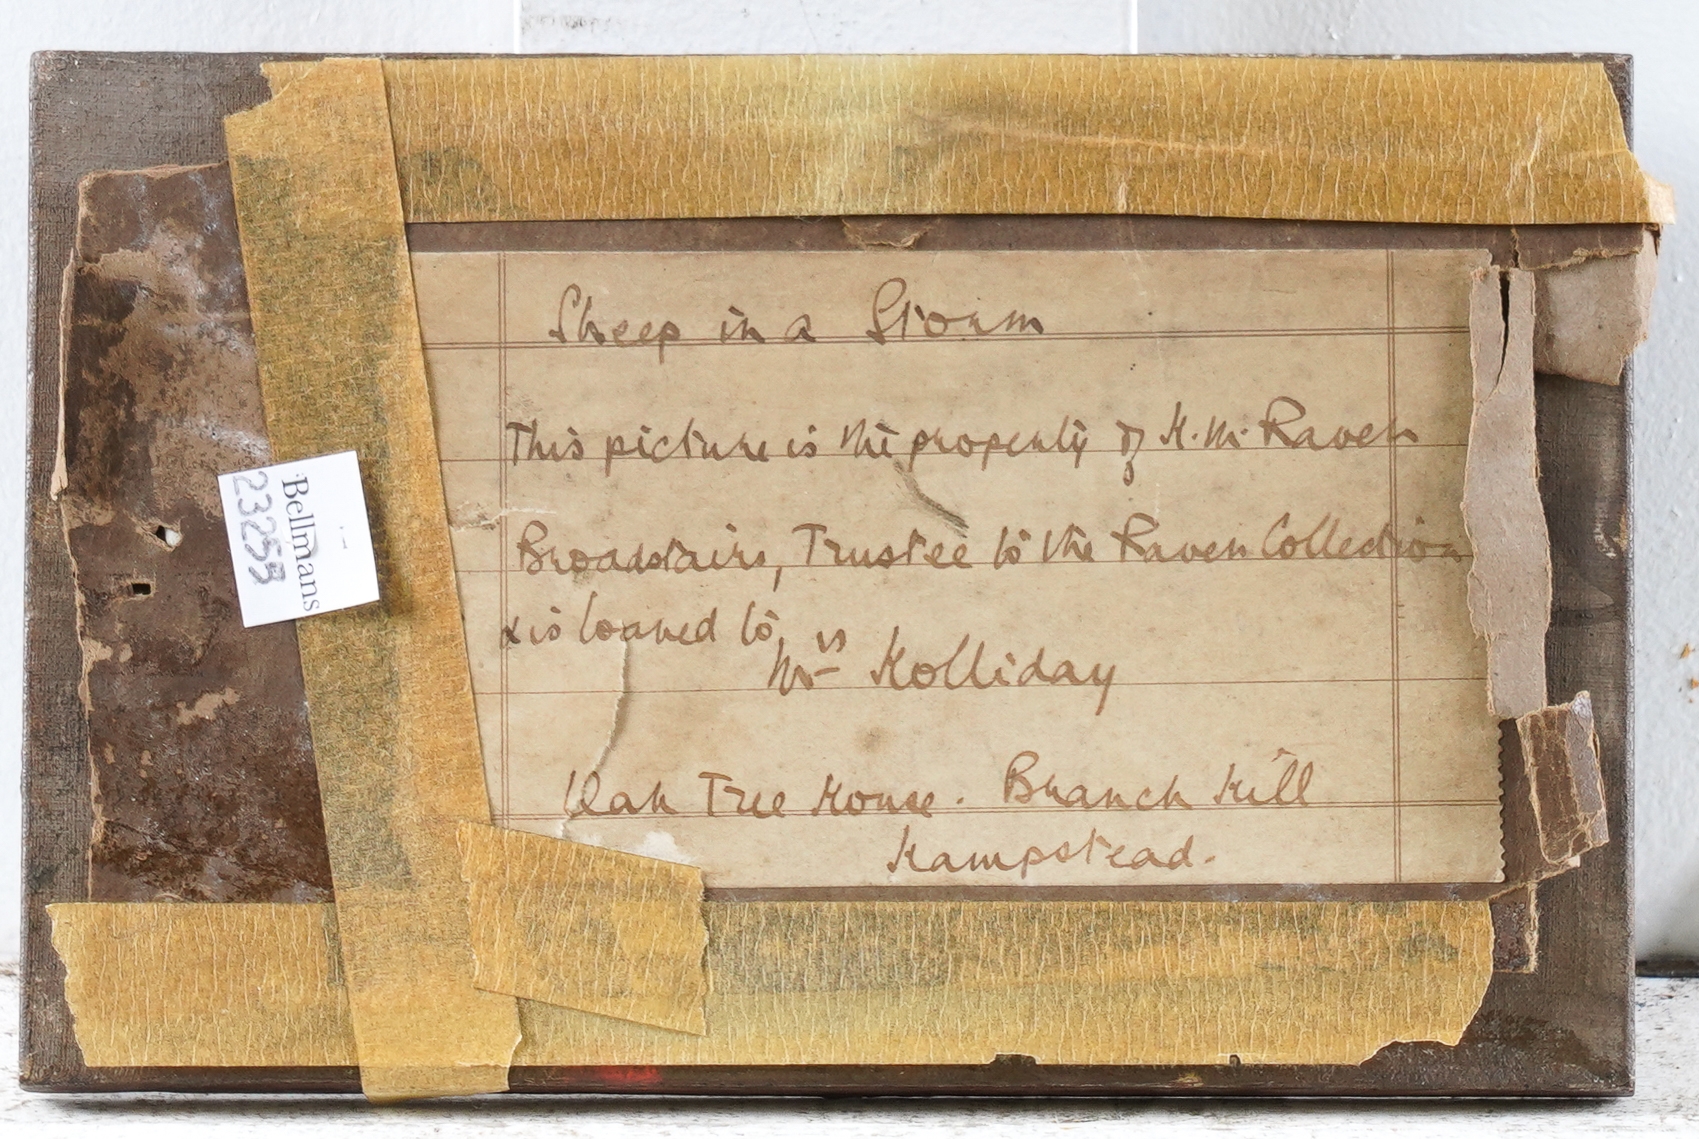 Sheep in a Storm
This picture is the property of H. M. Raven
Broadstairs, Trustee to the Raven Collection
& is loaned to,
Mrs Holliday
Oak Tree House. Branch Hill
Hampstead.
Bellmans